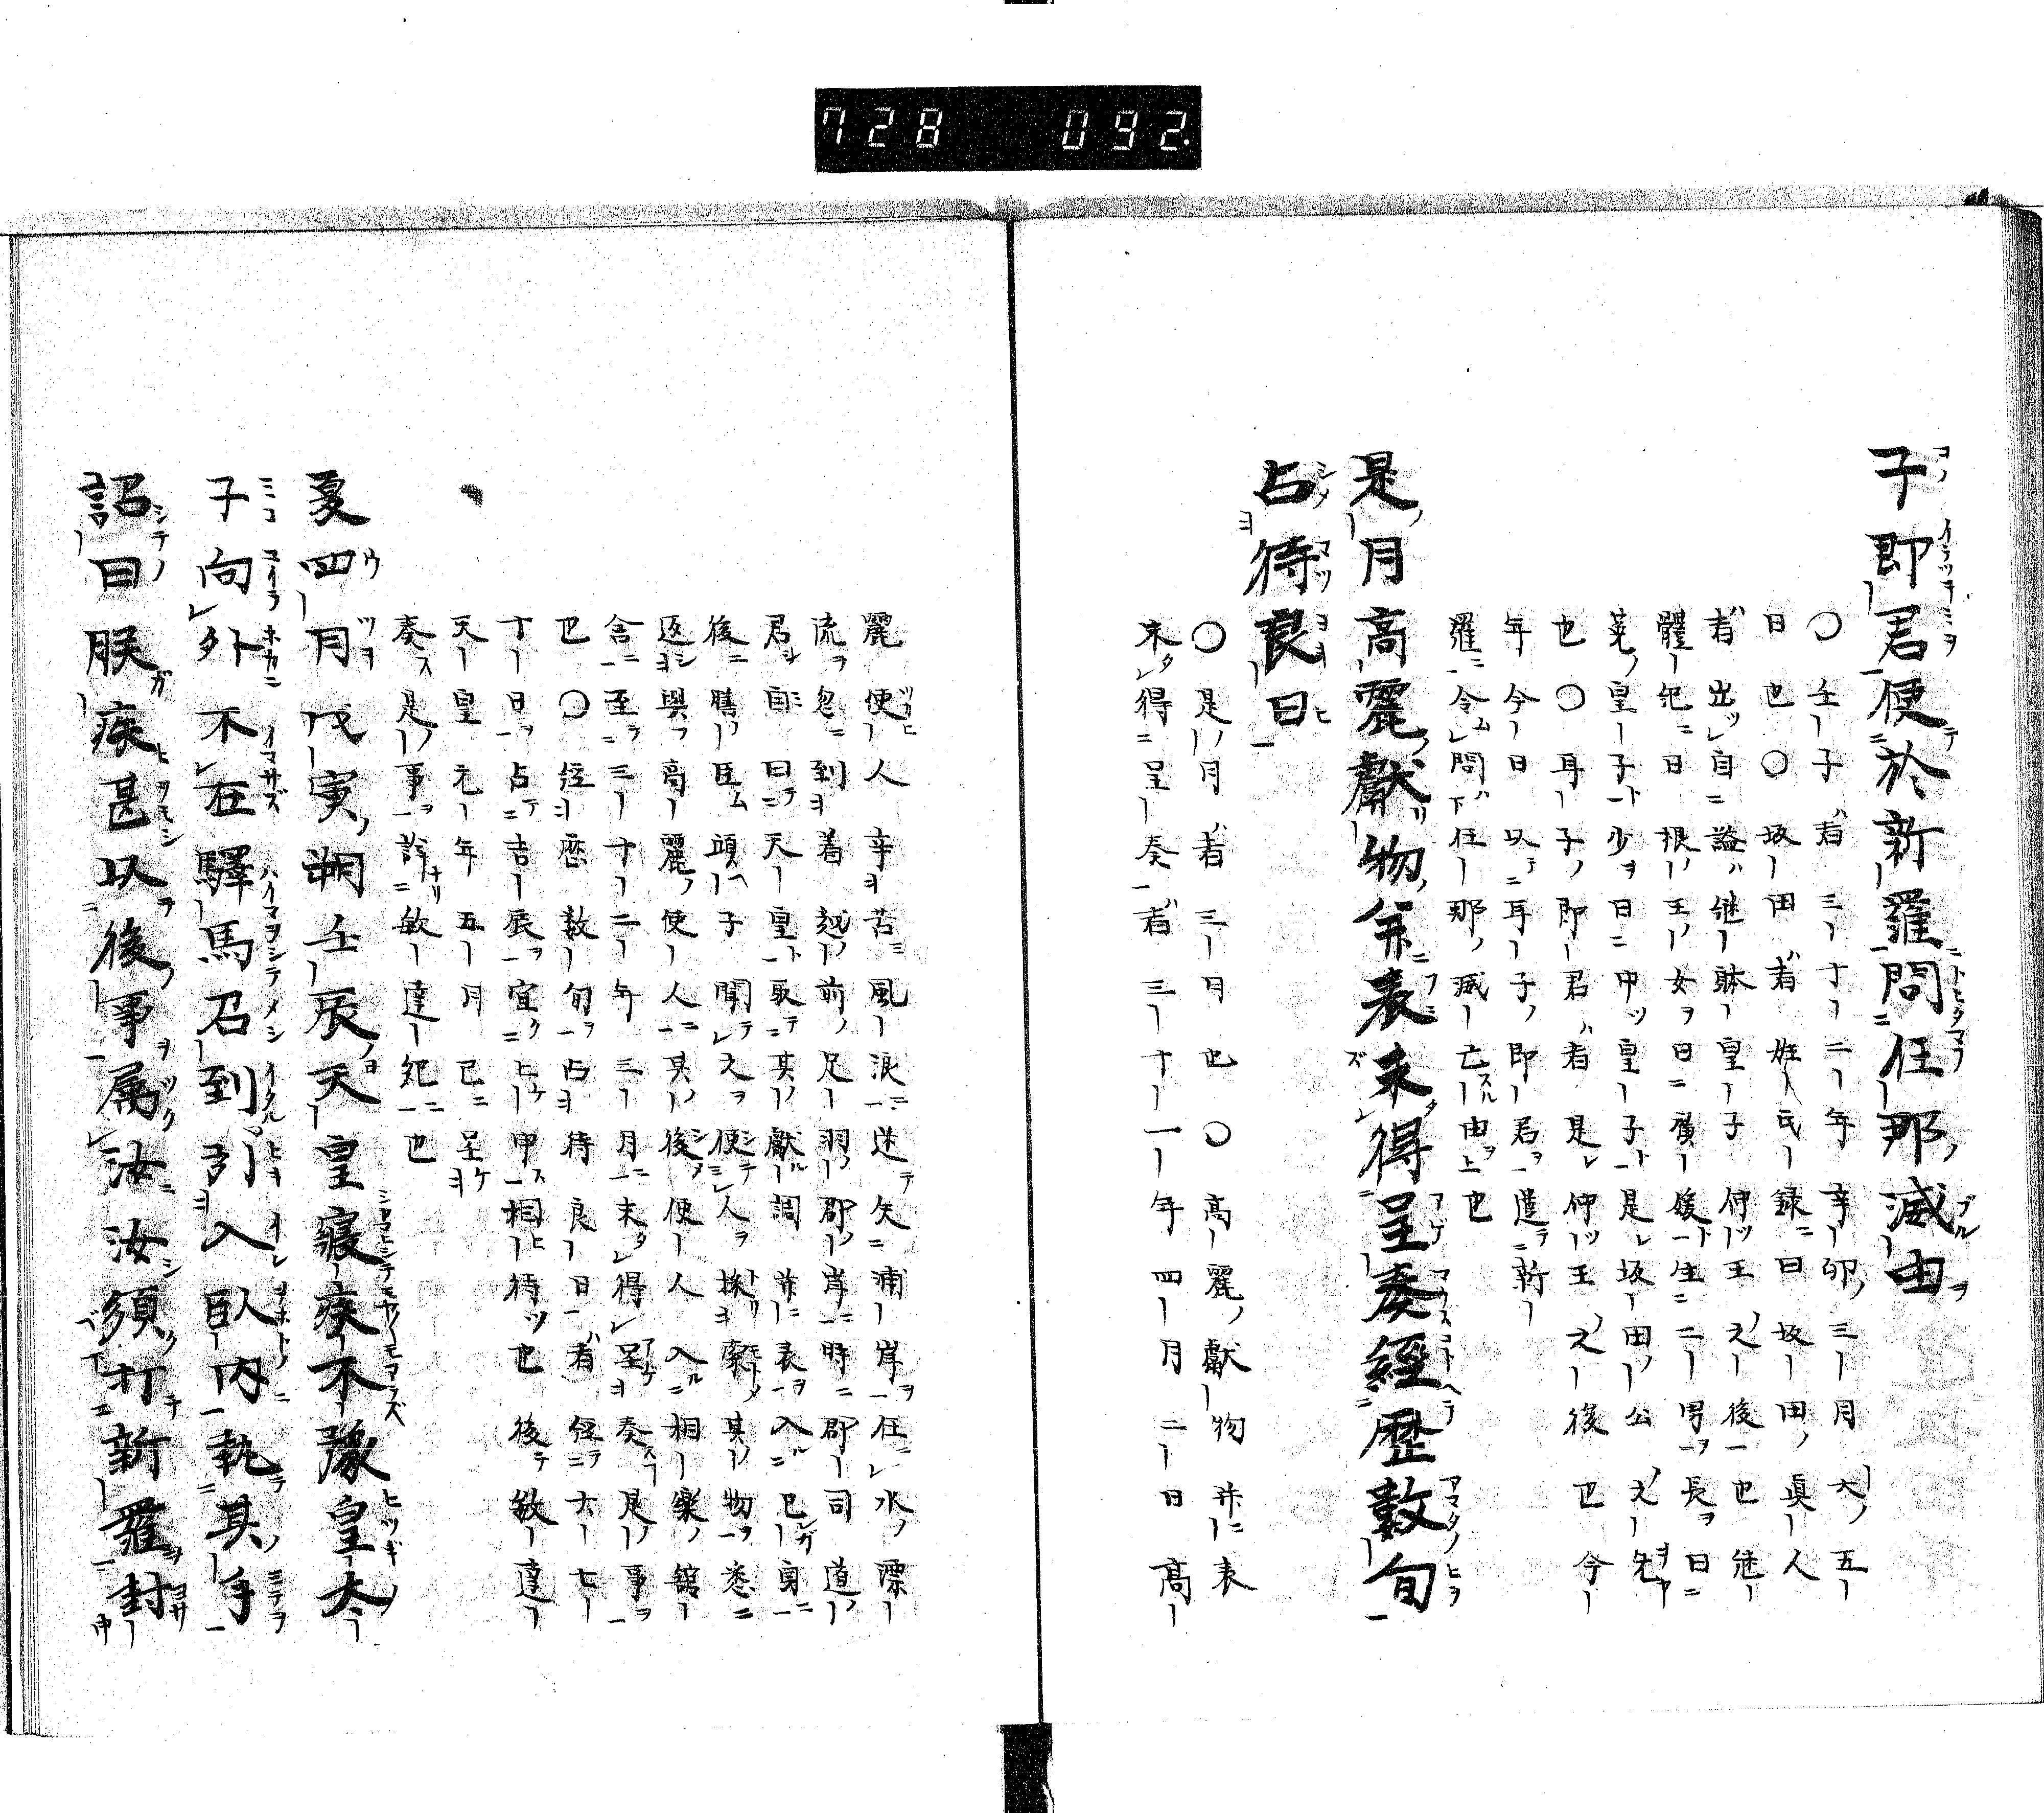 728 092
子即君使於新羅問任那滅由
〇壬子者三十二年辛卯三月大五
日也〇坂田者姓氏録曰坂田眞人
者出自謚継躰皇子仲王之後也継
體紀曰根王女曰廣媛生二男長曰
莵皇子少曰中皇子是坂田公之先
也〇耳子即君者是仲王之後也今
年今日以耳子即君遣新
羅令問任那滅亡由也
是月高麗獻物并表未得呈奏經歴數旬
占待良日
〇是月者三月也〇高麗獻物并表
未得呈奏者三十一年四月二日高
麗使人辛苦風浪迷失浦岸任水漂
流忽到着越前足羽郡岸時郡司道
君自曰天皇取其獻調并表入已身
後膳臣頭子聞之便人揆索其物悉
返與高麗使人其後使人入相樂舘
舎至三十二年三月未得呈奏是事
也〇經歴數旬占待良日者經六七
十日占吉辰宜上申相待也後敏達
天皇元年五月已呈
奏是事詳敏達紀也
夏四月戊寅朔壬辰天皇寢疾不豫皇太
子向外不在驛馬召到引入臥内執其手
詔曰朕疾甚以後事属汝汝須打新羅封